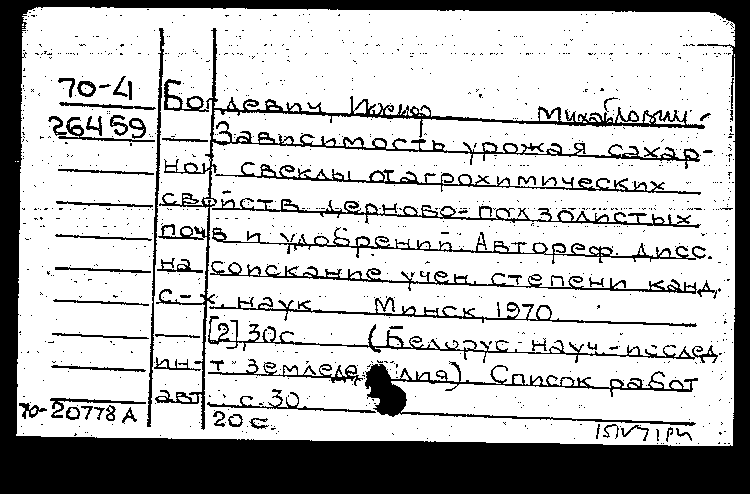 70-4 Богдевич, Иосиф Михайлович
26459 Зависимость урожая сахар-
ной свеклы от агрохимических
свойств дерново-подзолистых
почв и удобрений. Автореф. дисс.
на соискание учен. степени канд.
с.-х. наук. Минск, 1970.
[2],30с. (Белорус. науч.-исслед.
ин-т земледелия). Список работ
авт.: с.30.
70-20778А 20с.